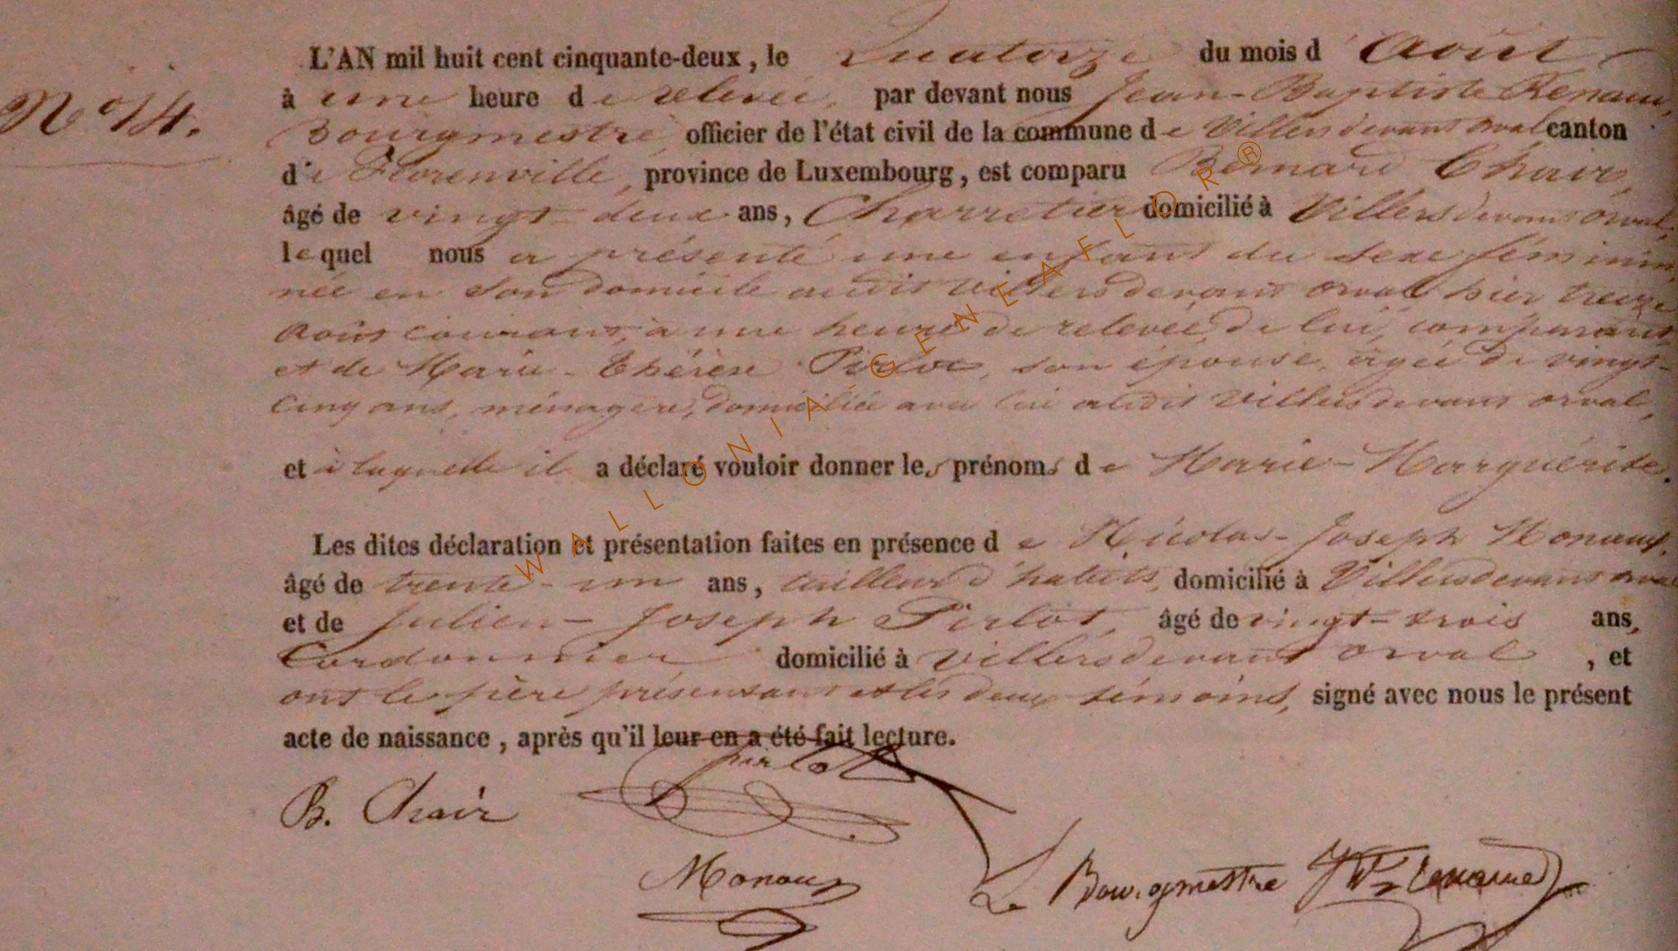 N° 14.
L'AN mil huit cent cinquante-deux, le Quatorze du mois d'Août
à une heure de relevée, par devant nous Jean-Baptiste Renaud,
Bourgmestre, officier de l'état civil de la commune de Villers devant orval canton
de Florenville, province de Luxembourg, est comparu Bernard Chair,
âgé de vingt deux ans, Charretier domicilié à Villers devant orval,
lequel nous a présenté une enfant du sexe féminin
née en son domicile audit Villers devant orval hier treize
août courant, à une heure de relevée, de lui, comparant
et de Marie-Thérèse Pirlot, son épouse, âgée de vingt-
cinq ans, ménagère, domiciliée avec lui audit Villers devant orval,
et à laquelle il a déclaré vouloir donner les prénoms de Marie-Marguérite.
Les dites déclaration et présentation faites en présence de Nicolas-Joseph Monaux,
âgé de trente-un ans, tailleur d'habits, domicilié à Villers devant orval
et de Julien-Joseph Pirlot, âgé de vingt-trois ans,
Cordonnier domicilié à Villers devant orval, et
ont le père présentant et les deux témoins, signé avec nous le présent
acte de naissance, après qu'il leur en a été fait lecture.
Pirlot
B. Chair
Monaux
Le Bourgmestre JB Renaud
WALLONIA-GENEAFLOR®